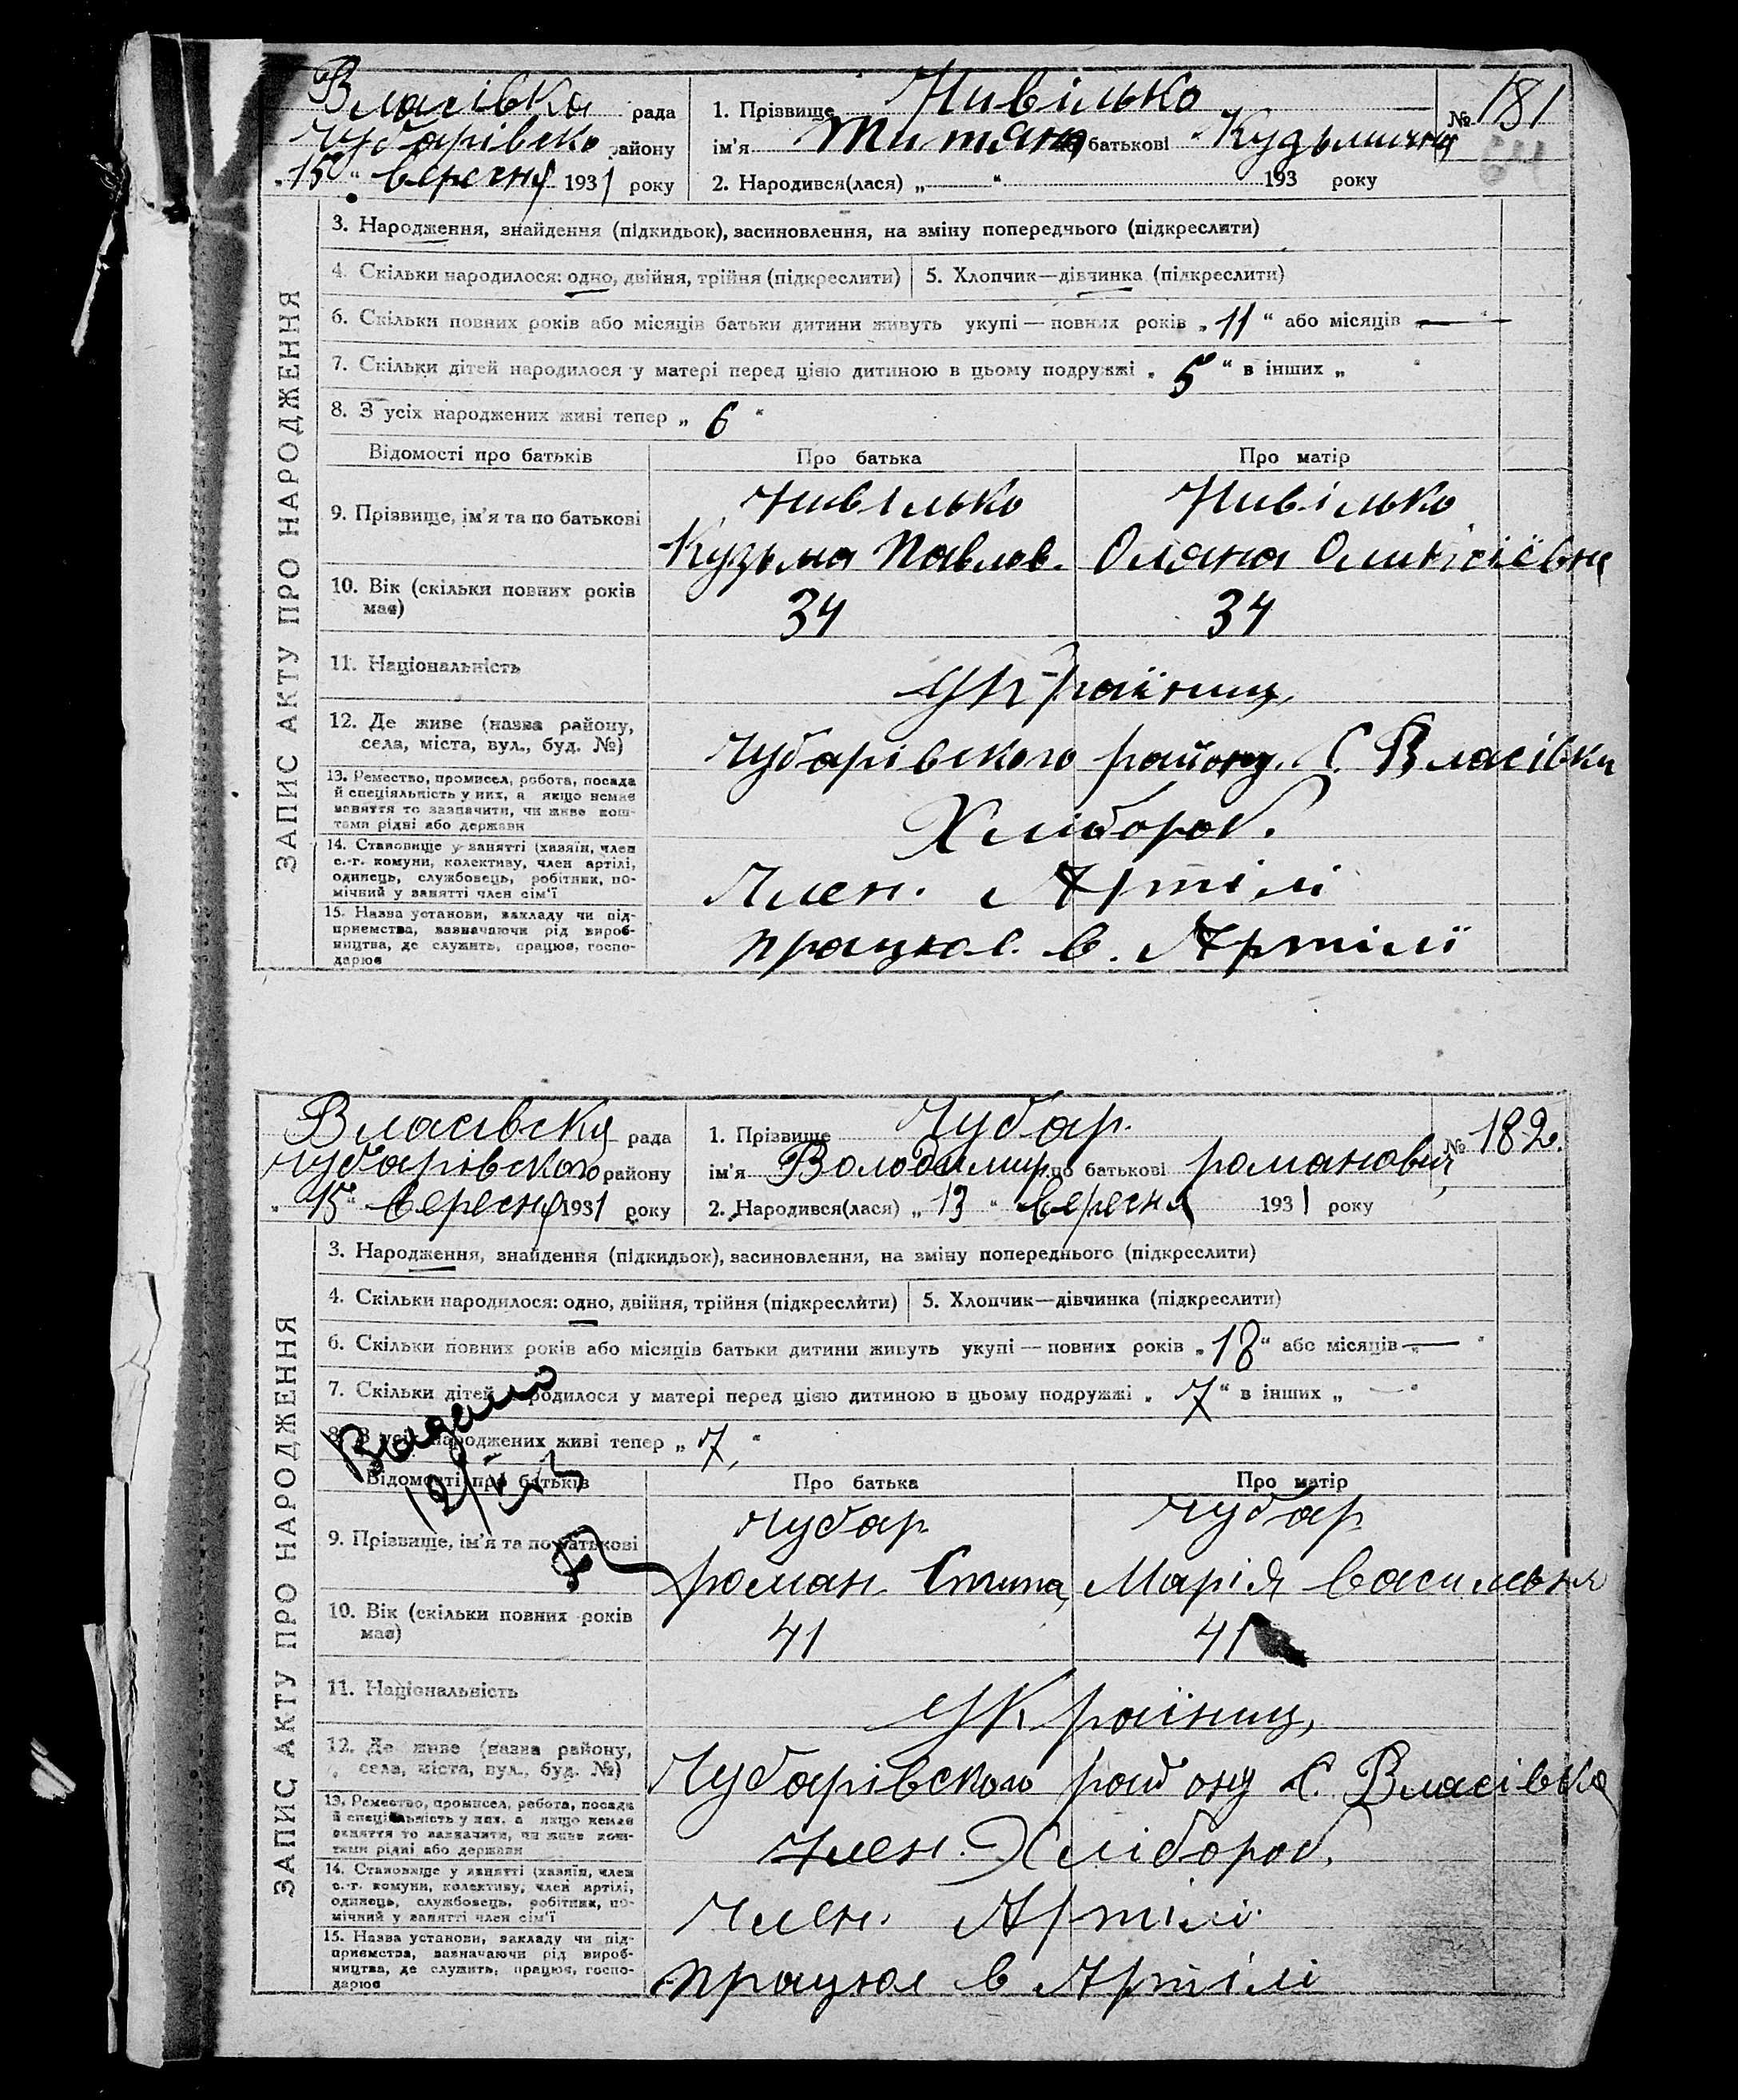 Власівка рада
Чубарівско району
„15“ вересня 1931 року
1. Прізвище Нивілько
№ 181
64
ім'я Титяна батькові Кузьминична
2. Народився(лася) „—“ 193 року
ЗАПИС АКТУ ПРО НАРОДЖЕННЯ
3. Народження, знайдення (підкидьок), засиновлення, на зміну попереднього (підкреслити)
4. Скільки народилося: одно, двійня, трійня (підкреслити) 5. Хлопчик—дівчинка (підкреслити)
6. Скільки повних років або місяців батьки дитини живуть укупі — повних років „11“ або місяців „—“
7. Скільки дітей народилося у матері перед цією дитиною в цьому подружжі „5“ в інших „ “
8. З усіх народжених живі тепер „6“
Відомості про батьків Про батька Про матір
9. Прізвище, ім'я та по батькові
Нивілько Нивілько
Кузьма Павлов. Оляна
10. Вік (скільки повних років має) 34 34
11. Національність Україниц,
12. Де живе (назва району, села, міста, вул., буд. №) Чубарівского району. С. Власівки
13. Ремество, промисел, робота, посада й спеціяльність у них, а якщо немає заняття то зазначити, чи живе коштами рідні або держави
Хлібороб.
14. Становище у занятті (хазяїн, член с.-г. комуни, колективу, член артілі, одинець, службовець, робітник, помічний у занятті член сім'ї
Член. Артілі
15. Назва установи, закладу чи підприємства, зазначаючи рід виробництва, де служить, працює, господарює
працює. в. Артілї
Власівська рада
Чубарівского району
„15“ вересня 1931 року
1. Прізвище Чубар.
№ 182.
ім'я Володимир по батькові романович
2. Народився(лася) „13“ вересня 1931 року
ЗАПИС АКТУ ПРО НАРОДЖЕННЯ
3. Народження, знайдення (підкидьок), засиновлення, на зміну попереднього (підкреслити)
4. Скільки народилося: одно, двійня, трійня (підкреслити) 5. Хлопчик—дівчинка (підкреслити)
6. Скільки повних років або місяців батьки дитини живуть укупі — повних років „18“ або місяців „—“
7. Скільки дітей народилося у матері перед цією дитиною в цьому подружжі „7“ в інших „—“
8. З усіх народжених живі тепер „7,“
Відомості про батьків Про батька Про матір
9. Прізвище, ім'я та по батькові
Чубар Чубар
роман Марія
10. Вік (скільки повних років має) 41 41
11. Національність Україниц,
12. Де живе (назва району, села, міста, вул., буд. №) Чубарівского району С. Власівка
13. Ремество, промисел, робота, посада й спеціяльність у них, а якщо немає заняття то зазначити, чи живе коштами рідні або держави
Член. Хлібороб.
14. Становище у занятті (хазяїн, член с.-г. комуни, колективу, член артілі, одинець, службовець, робітник, помічний у занятті член сім'ї
Член. Артілі.
15. Назва установи, закладу чи підприємства, зазначаючи рід виробництва, де служить, працює, господарює
працює в Артілі